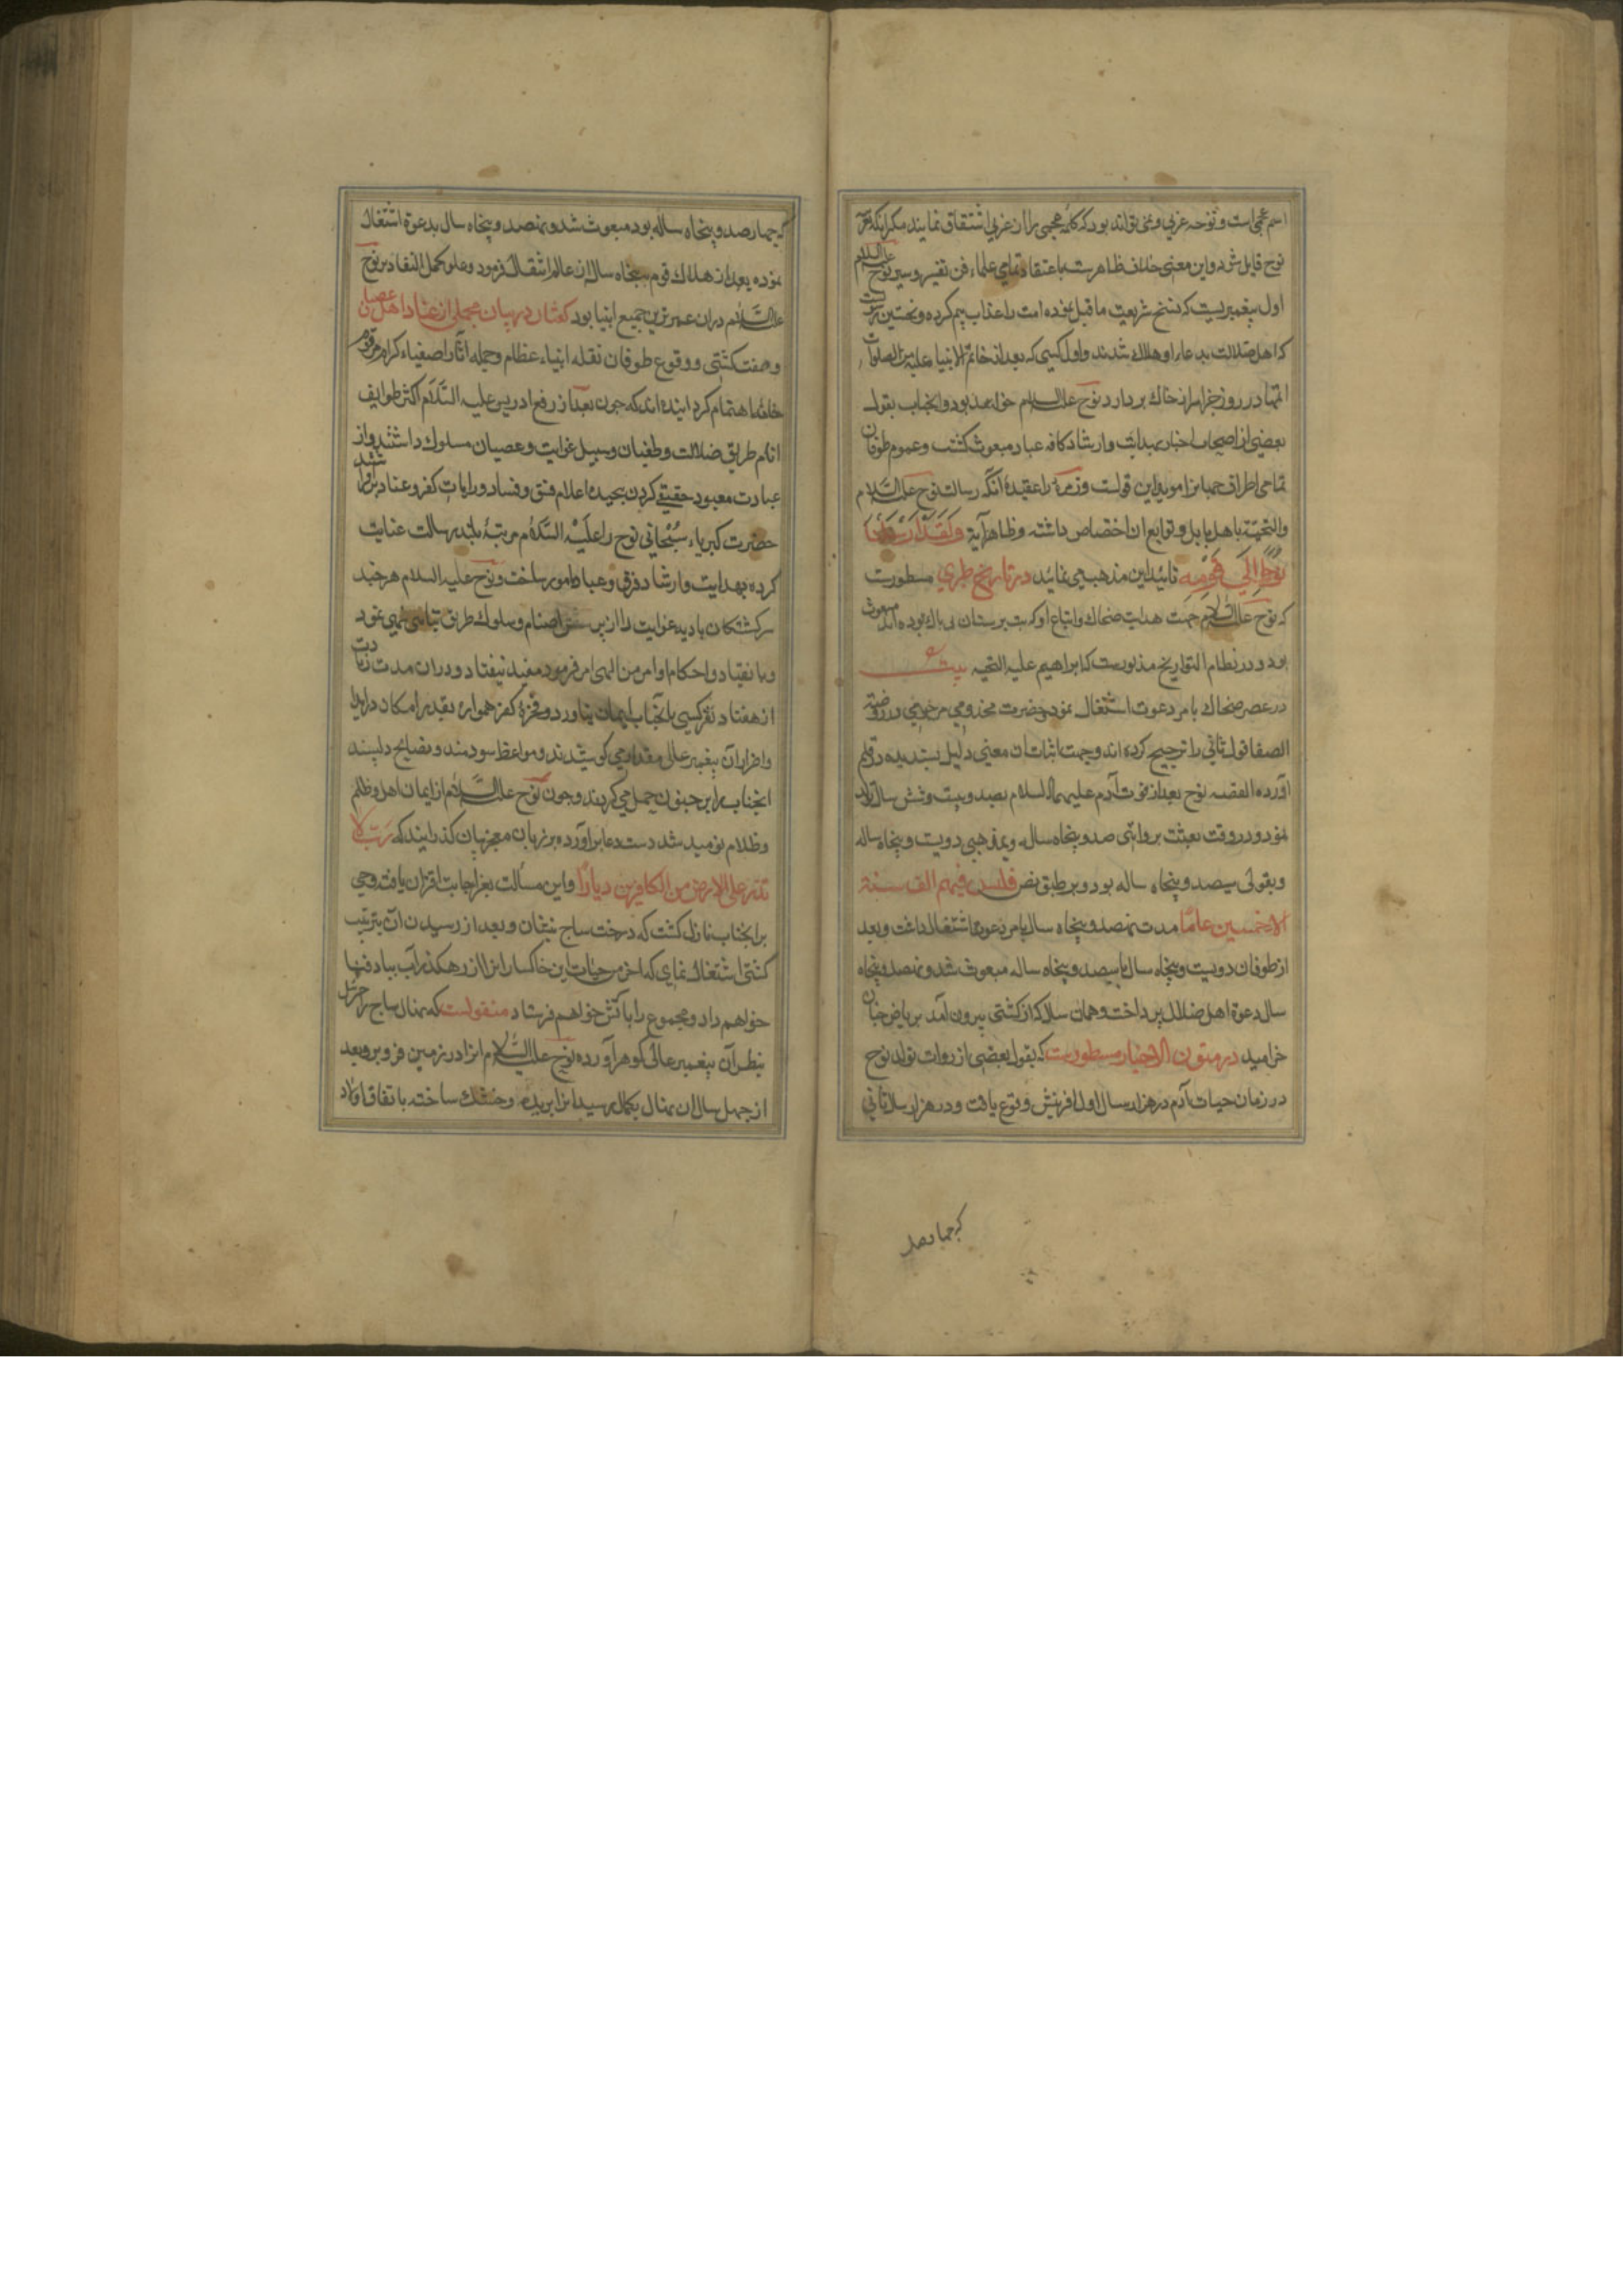 اسم عجمی است و نوحه عربی و نمی تواند بود که کلمه عجمی را از عربی اشتقاق نمایند مکر آنکه
نوح قایل شود و این معنی خلاف ظاهرست باعتقاد تمامی علماء فن تفسیر و سیر نوح علیه السلام
اول پیغمبریست که نسخ شریعت ما قبل نموده امت را عذاب بیم کرده و نخستین
که اهل ضلالت بدعاء او هلاک شدند و اول کسی که بعد از خاتم الانبیا علیه من الصلوات
اتمها در روز جزا سر از خاک بردارد نوح علیه السلام خواهد بود و انجناب بقول
بعضی از اصحاب اخبار بهدایت و ارشاد کافه عباد مبعوث کشت و عموم طوفان
تمامی اطراف جهانرا موید این قولست و زمرهٔ را عقیده آنکه رسالت نوح علیه السلام
والتحیه باهل بابل و توابع ان اختصاص داشته و ظاهر آیة وَلَقَدْ اَرْسَلْنَا
نُوحًا اِلَی قَوْمِهِ تائید این مذهب می نماید در تاریخ طبری مسطورست
که نوح علیه السلام جهت هدایت ضحاک و اتباع او که بت پرستان بی باک بوده اند مبعوث
بود و در نظام التواریخ مذبورست که ابراهیم علیه التحیه بیت
در عصر ضحاک بامر دعوت اشتغال نمود حضرت مخدومی مرحومی در روضة
الصفا قول ثانی را ترجیح کرده اند و جهت اثبات ان معنی دلیل پسندیده در قلم
آورده القصه نوح بعد از فوت آدم علیهما السلام بصد و بیست و شش سال تولد
نمود و در وقت بعثت بروایتی صد و پنجاه ساله و بمذهبی دویست و پنجاه ساله
و بقولی سیصد و پنجاه ساله بود و بر طبق نص فلبس فیهم الف سنة
الا خمسین عامًا مدت نهصد و پنجاه سال بامر دعوت اشتغال داشت و بعد
از طوفان دویست و پنجاه سال یا سیصد و پنجاه ساله مبعوث شد و نهصد و پنجاه
سال دعوة اهل ضلال پرداخت و همان سال که از کشتی بیرون آمد بریاض جنان
خرامید در متون الاخبار مسطورست که بقول بعضی از روات تولد نوح
در زمان حیات آدم در هزار سال اول افرینش وقوع یافت و در هزار سال ثانی
که چهارصد
که چهارصد و پنجاه ساله بود مبعوث شد و نهصد و پنجاه سال بدعوة اشتغال
نموده بعد از هلاک قوم پنجاه سال از عالم انتقال فرمود و علی کل التقادیر نوح
علیه السلام دران عمر ترین جمیع انبیا بود کفتار در بیان مجملی از عناد اهل عصیان
و صفت کشتی و وقوع طوفان نقله انبیاء عظام و حمله اثار اصفیاء کرام مرقوم
خامه اهتمام کردانیده اند که چون بعد از رفع ادریس علیه السَّلام اکثر طوایف
انام طریق ضلالت و طغیان و سبیل غوایت و عصیان مسلوک داشتند و از
عبادت معبود حقیقی کردن پیچیده اعلام فسق و فساد و رایات کفر و عناد برافراشتند
حضرت کبریاء سُبْحانی نوح را علَیْه السَّلام مرتبهٔ بلند رسالت عنایت
کرده بهدایت و ارشاد فرق عباد مامور ساخت و نوح علیه السلام هر چند
سرکشتکان بادیه غوایت را از پرستش اصنام و سلوک طریق تباهی نهی نمود
و بانقیاد و احکام اوامر من الهی امر فرمود مفید نیفتاد و دران مدت زیادت
از هفتاد نفر کسی بانجناب ایمان نیاورد و فجرهٔ کفره همواره بقدر امکان در ایذا
و اضرار آن پیغمبر عالی مقدار می کوشیدند و مواعظ سودمند و نصایح دلپسند
انجناب را بر جنون حمل می کردند و چون نوح علیه السَّلام از ایمان اهل ظلم
و ظلام نومید شد دست دعا برآورده بر زبان معجز بیان کذرانید که رَبّ لا
تذر علی الارض من الکافرین دیارًا و این مسألت بعز اجابت اقتران یافت وحی
برانجناب نازل کشت که درخت ساج بنشان و بعد از رسیدن ان بترتیب
کشتی اشتغال نمای که اخر من حیات این خاکساران را از رهکذر آب بباد فنا
خواهم داد و مجموع را باتش خواهم فرستاد منقولست که نهال ساج را جبرئیل
بنظر آن پیغمبر عالی کوهر آورده نوح علیه السَّلام انرا در زمین فرو برد و بعد
از چهل سال ان نهال بکمال رسید انرا بریده و خشک ساخته باتفاق اولاد